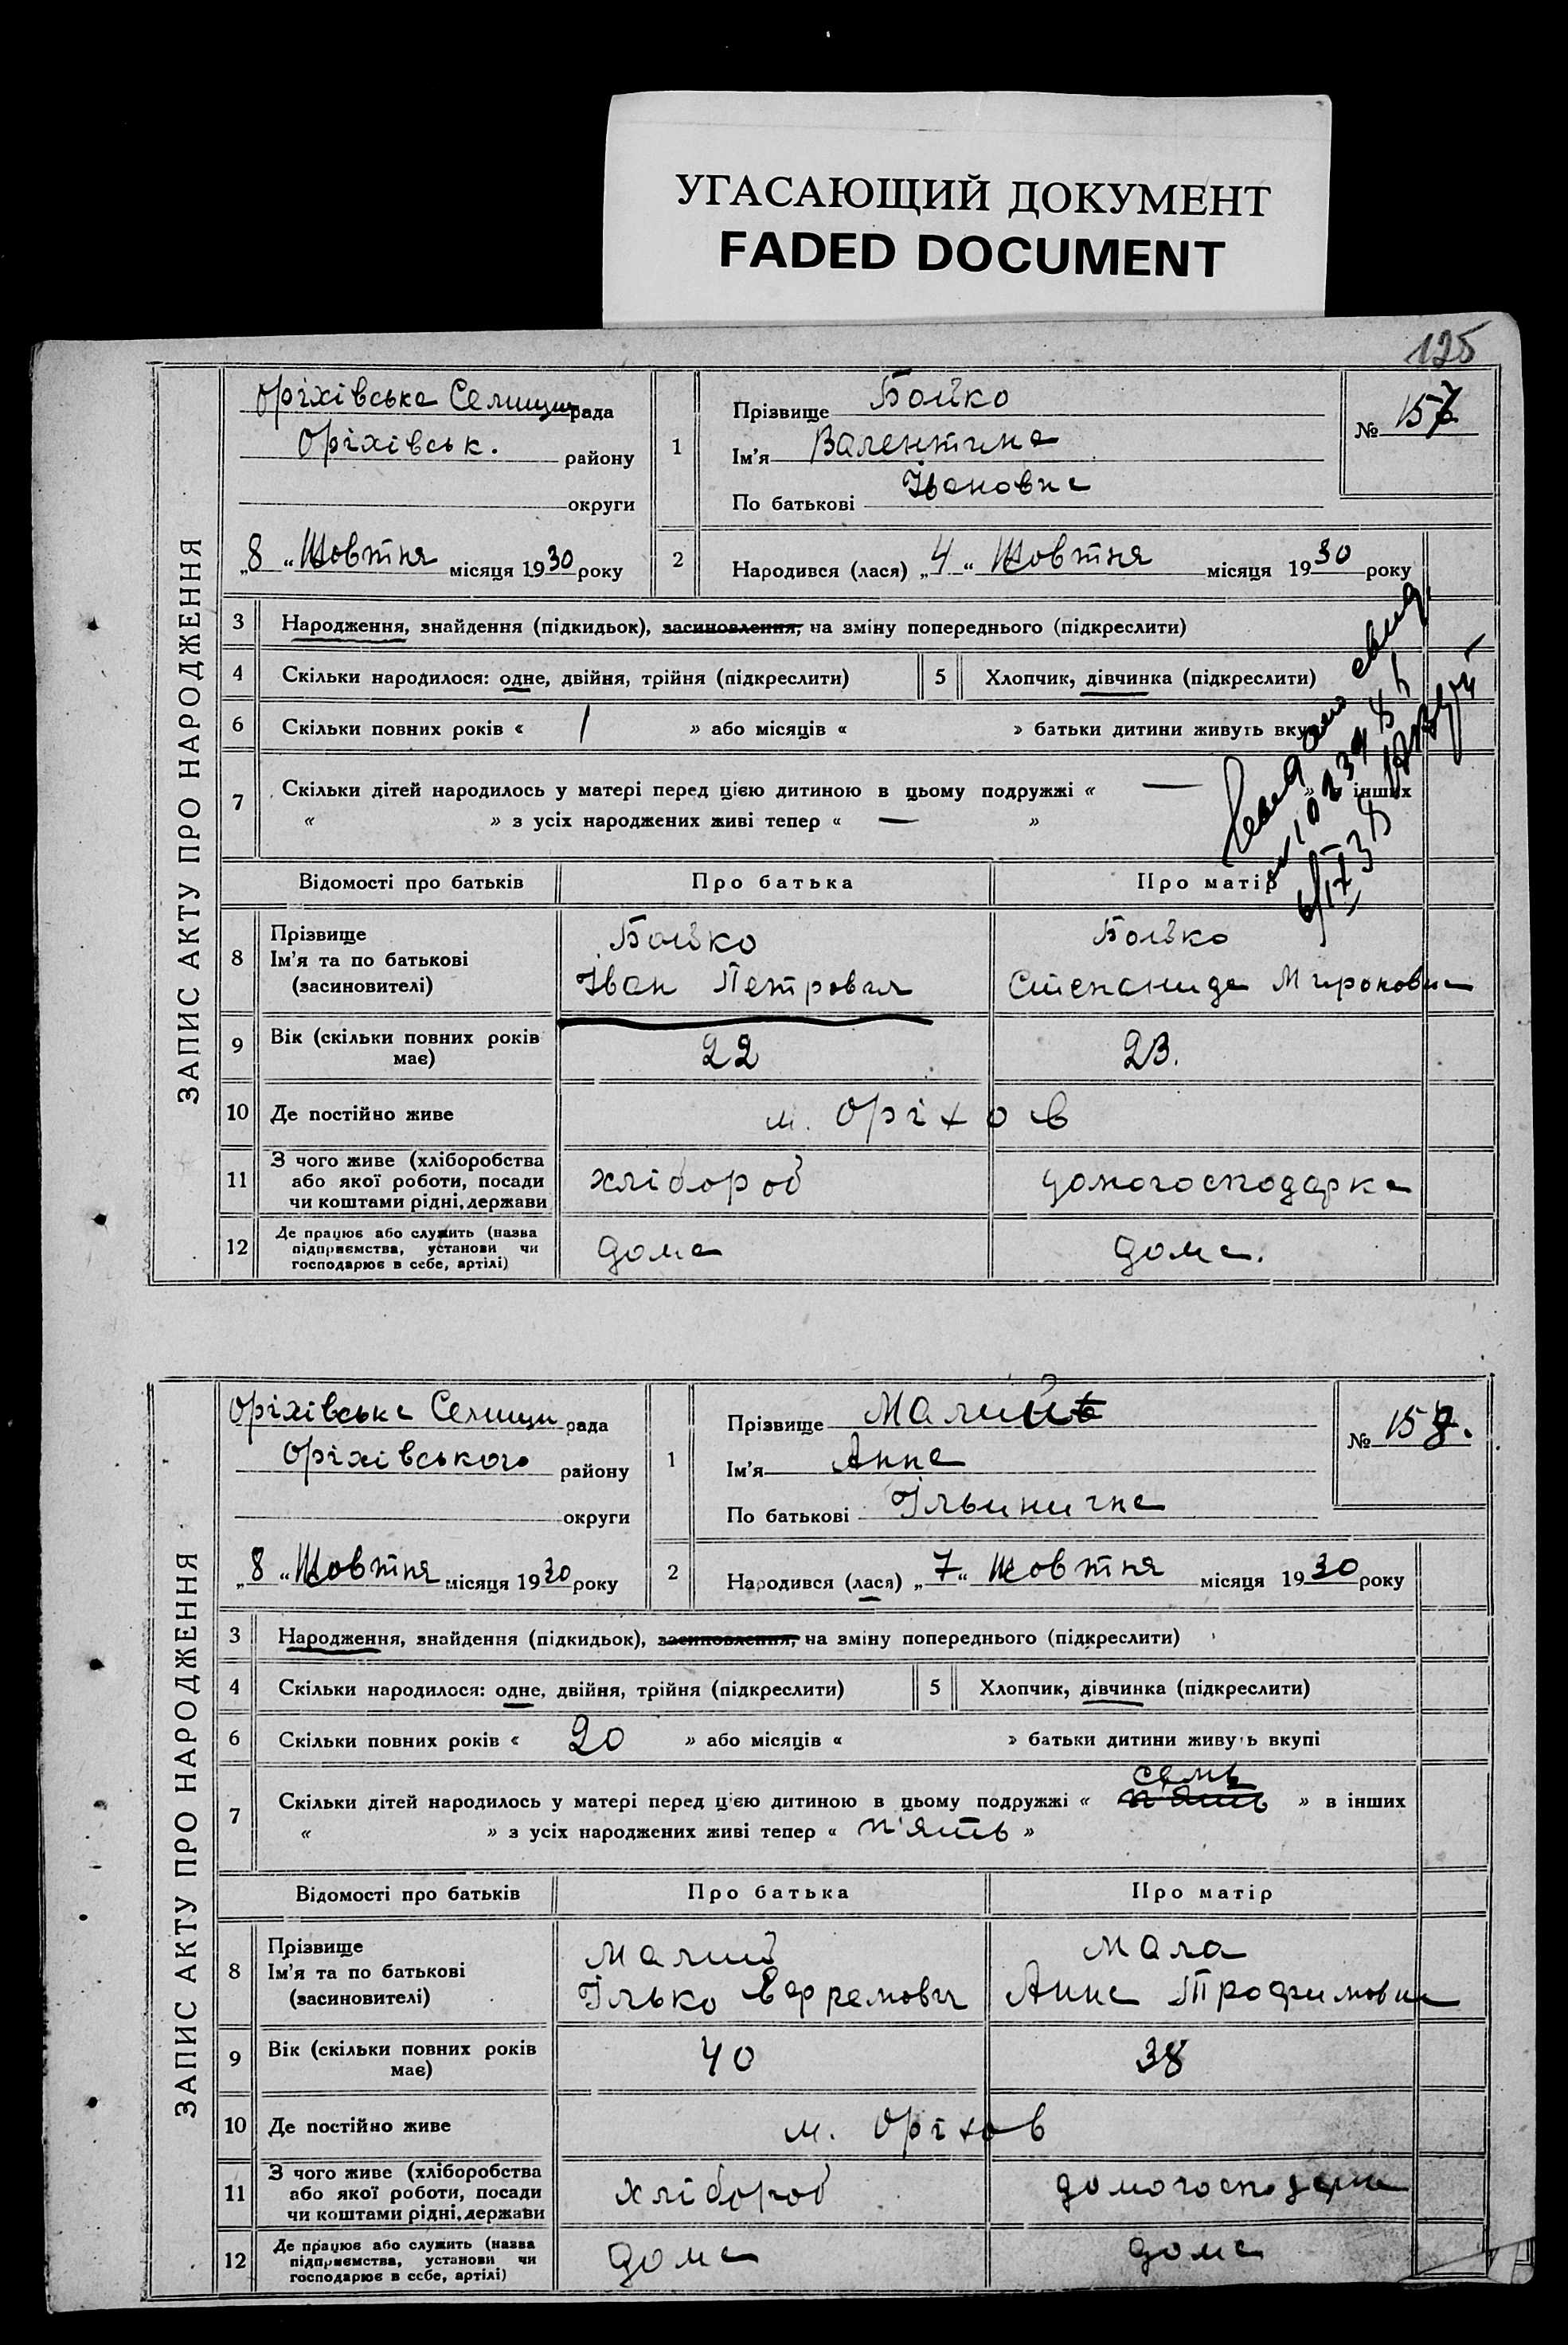 УГАСАЮЩИЙ ДОКУМЕНТ
FADED DOCUMENT
125
ЗАПИС АКТУ ПРО НАРОДЖЕННЯ
Оріхівська Селищн рада
Оріхівськ. району
округи
„8“ Жовтня місяця 1930 року
1
Прізвище Бойко
Ім’я Валентина
По батькові Івановна
№ 157
2
Народився (лася) „4“ Жовтня місяця 1930 року
3 Народження, знайдення (підкидьок), засиновлення, на зміну попереднього (підкреслити)
4 Скільки народилося: одне, двійня, трійня (підкреслити)
5 Хлопчик, дівчинка (підкреслити)
6 Скільки повних років « 1 » або місяців « » батьки дитини живуть вкупі
7 Скільки дітей народилось у матері перед цією дитиною в цьому подружжі « — » в інших
« » з усіх народжених живі тепер « — »
Відомості про батьків Про батька Про матір
8 Прізвище Бойко Бойко
Ім’я та по батькові Іван Петрович Степанида Мироновна
(засиновителі)
9 Вік (скільки повних років має) 22 23.
10 Де постійно живе м. Оріхов
11 З чого живе (хліборобства
або якої роботи, посади хлібороб домогосподарка
чи коштами рідні, держави
12 Де працює або служить (назва
підприємства, установи чи дома дома.
господарює в себе, артілі)
ЗАПИС АКТУ ПРО НАРОДЖЕННЯ
Оріхівська Селищн рада
Оріхівського району
округи
„8“ Жовтня місяця 1930 року
1
Прізвище Малий
Ім’я Анна
По батькові Ільинична
№ 158.
2
Народився (лася) „7“ Жовтня місяця 1930 року
3 Народження, знайдення (підкидьок), засиновлення, на зміну попереднього (підкреслити)
4 Скільки народилося: одне, двійня, трійня (підкреслити)
5 Хлопчик, дівчинка (підкреслити)
6 Скільки повних років « 20 » або місяців « » батьки дитини живуть вкупі
семь
7 Скільки дітей народилось у матері перед цією дитиною в цьому подружжі « п'ять » в інших
« » з усіх народжених живі тепер « п'ять »
Відомості про батьків Про батька Про матір
8 Прізвище Малий Мала
Ім’я та по батькові Ілько Ефремович Анна Трофимовна
(засиновителі)
9 Вік (скільки повних років має) 40 38
10 Де постійно живе м. Оріхов
11 З чого живе (хліборобства
або якої роботи, посади хлібороб
чи коштами рідні, держави
12 Де працює або служить (назва
підприємства, установи чи дома дома
господарює в себе, артілі)